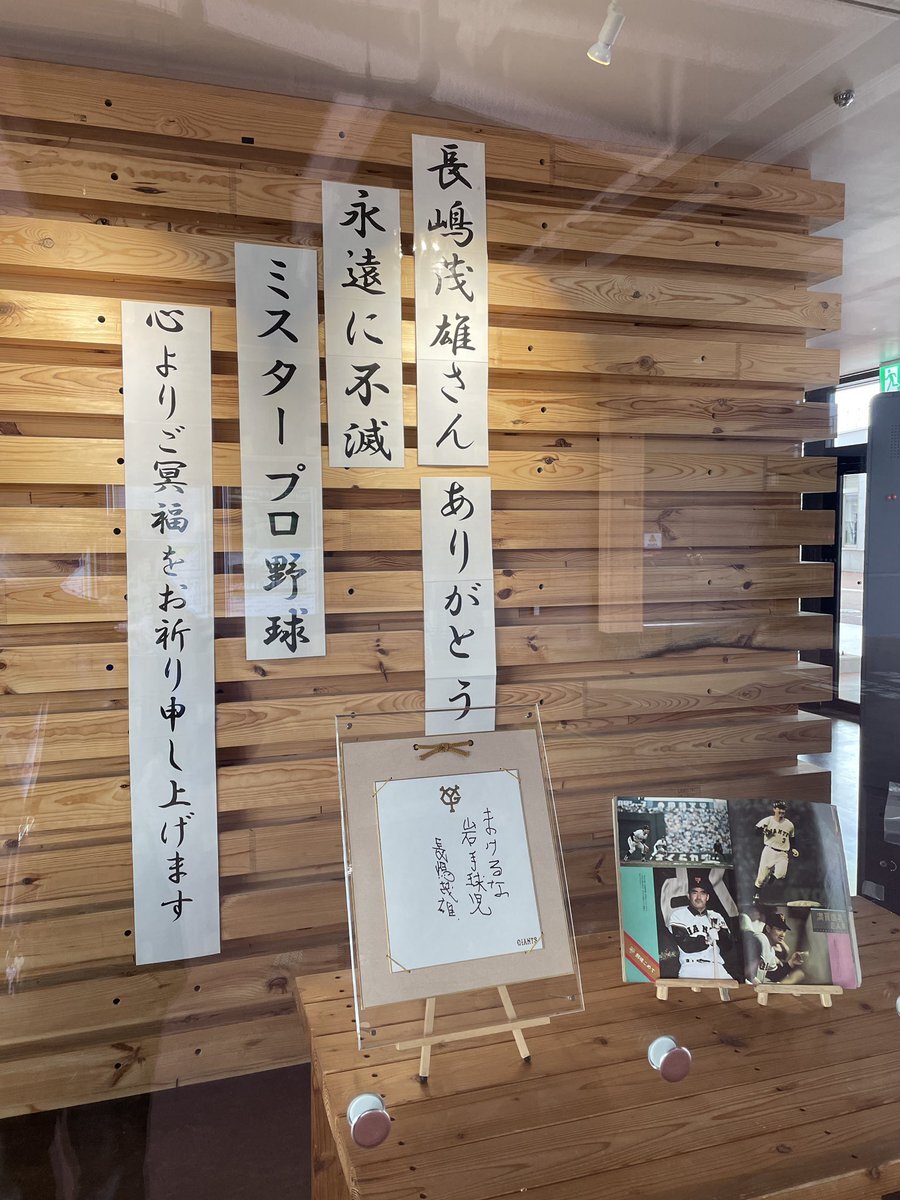 長嶋茂雄さん
ありがとう
永遠に不滅
ミスタープロ野球
心よりご冥福をお祈り申し上げます
まけるな
岩手球児
長嶋茂雄
GIANTS
GIANTS
3